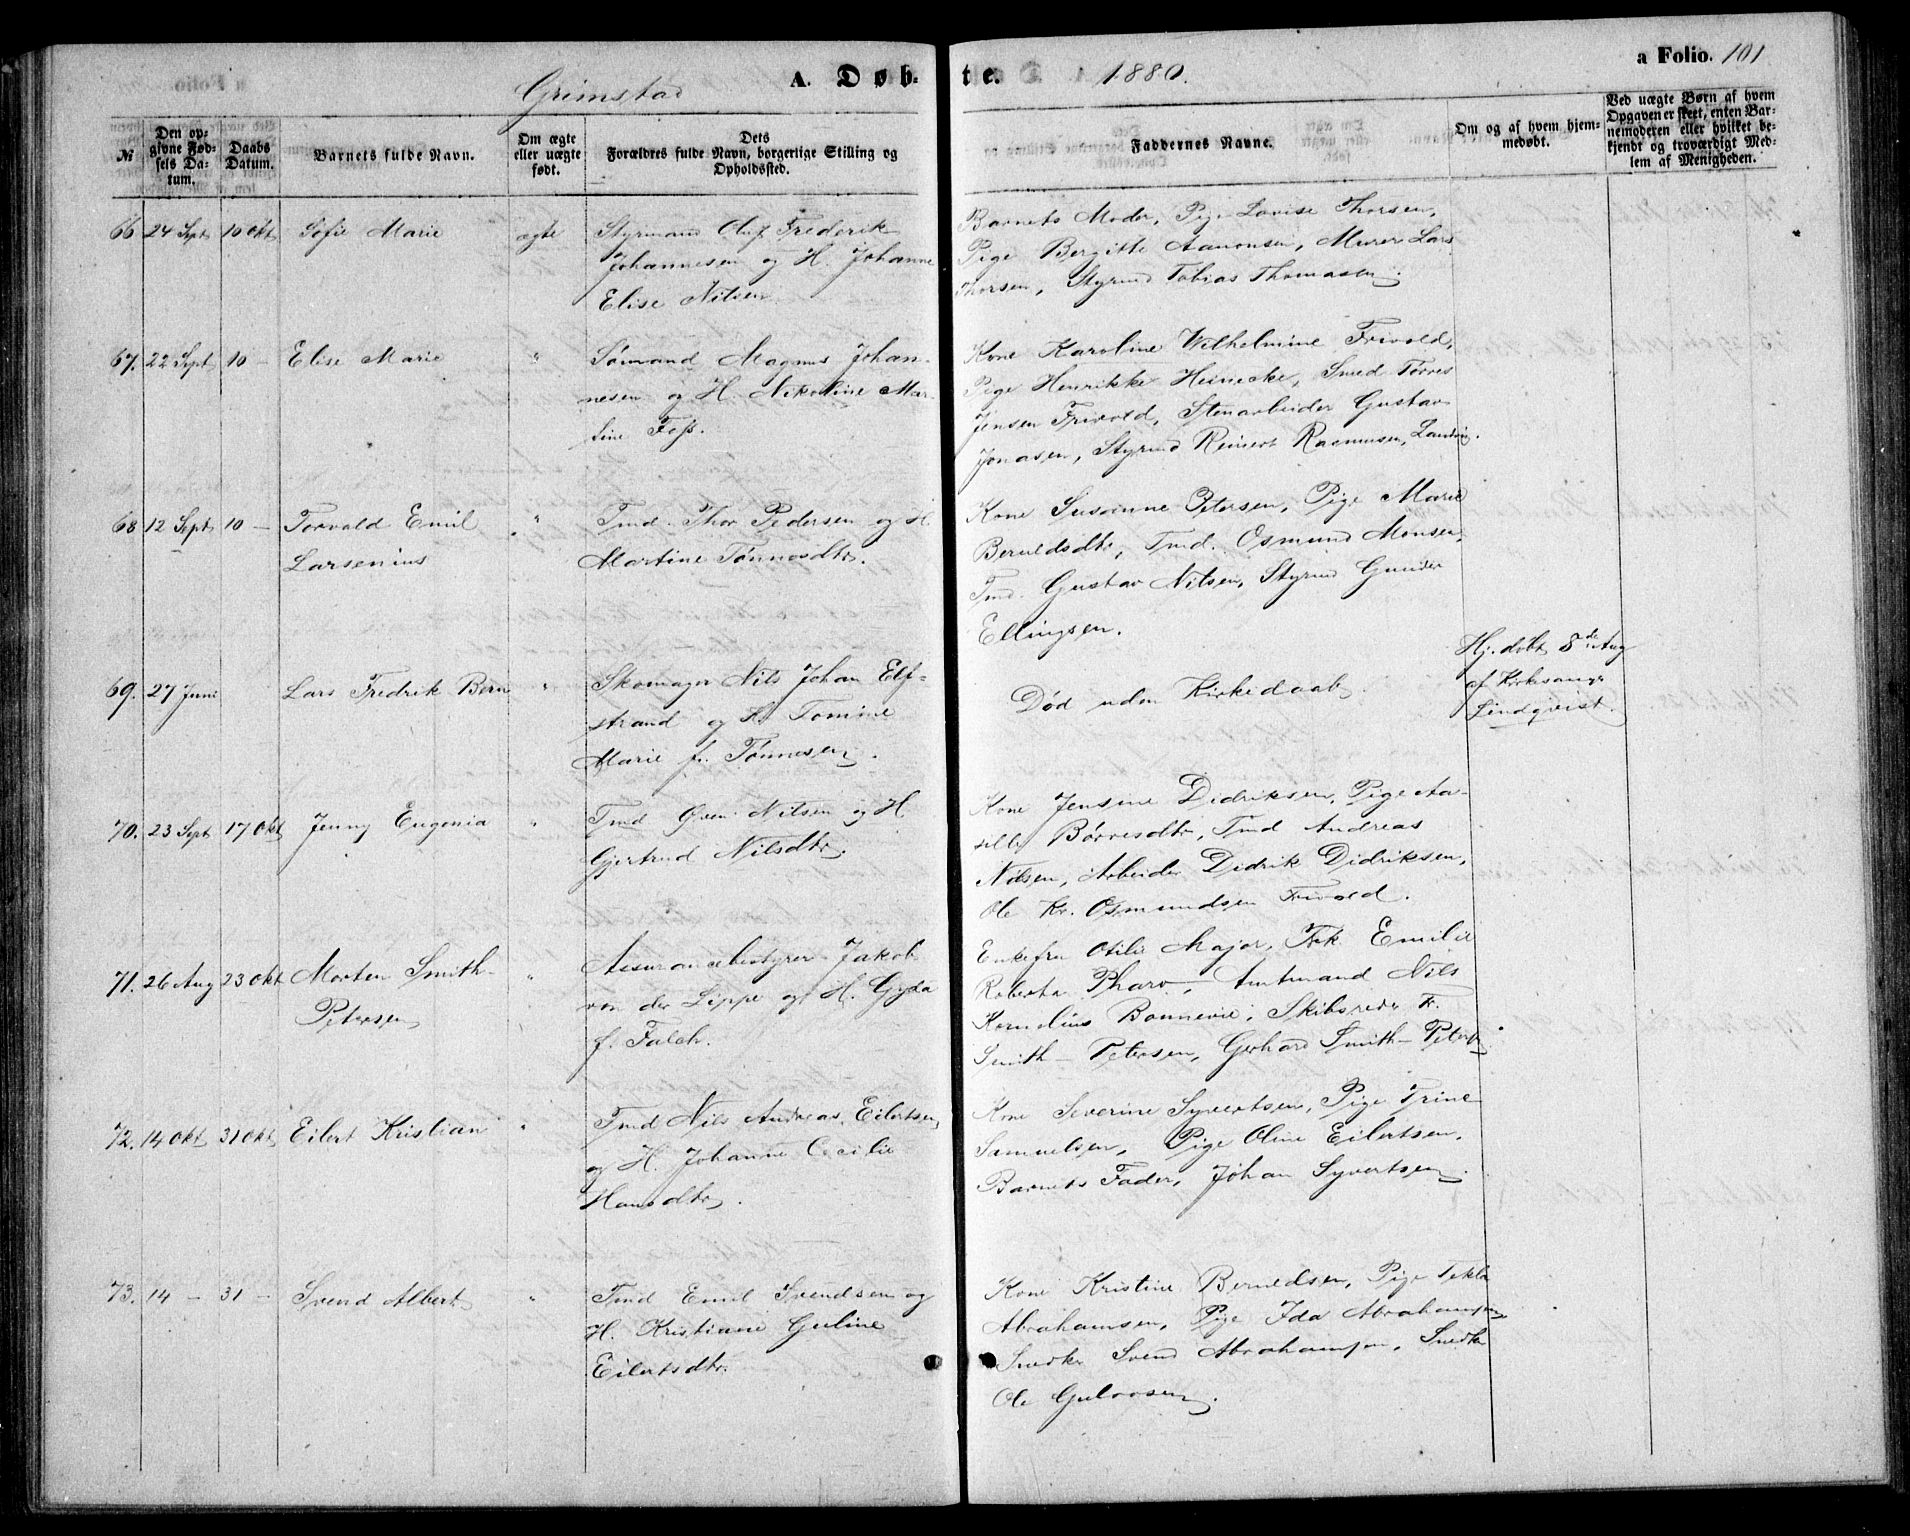 Grimstad A. Døb-te. 1880. a Folio. 101
№
Den op-
givne Fød-
sels Da-
tum.
Daabs
Datum.
Barnets fulde Navn.
Om ægte
eller uægte
født.
Dets
Forældres fulde Navn, borgerlige Stilling og
Opholdssted.
Faddernes Navne.
Om og af hvem hjem-
medøbt.
Ved uægte Børn af hvem
Opgaven er skeet, enten Bar-
nemoderen eller hvilket be-
kjendt og troværdigt Med-
lem af Menigheden.
66 24 Sept 10 Okt Sofie Marie ægte
Styrmand Oluf Frederik
Johannesen og H. Johanne
Elise Nilsen
Barnets Moder, Pige Lovise Thorsen,
Pige Bergitte Aanonsen, Murer Lars
Thorsen, Styrmd Tobias Thomasen.
67. 22 Sept 10 – Elise Marie "
Sømand Magnus Johan-
nesen og H. Nikoline Mar-
tine Foss.
Kone Karoline Wilhelmine Frivold,
Pige Henrikke Heinecke, Smed Tørres
Jensen Frivold, Stenarbeider Gustav
Jonasen, Styrmd Reinert Rasmusen, Landvig.
68 12 Sept 10 – Torvald Emil "
Larsenius
Tmd. Thor Pedersen og H.
Martine Tønnesdtr.
Kone Susanne Petersen, Pige Marie
Berntdsdtr, Tmd. Osmund Monsen,
Tmd. Gustav Nilsen, Styrmd Gunder
Ellingsen.
69. 27 Juni Lars Fredrik Bern "
Skomager Nils Johan Elf-
strand og H. Tomine
Marie f. Tønnesen.
Død uden Kirkedaab.
Hj. døbt 8de Aug
af Kirkesanger
Lindqvist.
70. 23 Sept 17 Okt Jenny Eugenia "
Tmd Sven Nilsen og H
Gjertrud Nilsdtr.
Kone Jensine Didriksen, Pige Aa-
sille Børresdtr, Tmd Andreas
Nilsen, Arbeider Didrik Didriksen,
Ole Kr. Osmundsen Frivold.
71. 26 Aug 23 Okt Morten Smith- "
Petersen
Assurancebestyrer Jakob
von der Lippe og H. Gyda
f. Falch.
Enkefru Otilie Major, Frk. Emilie
Roberta Pharo, Amtmand Nils
Kornelius Bonnevie, Skibsreder Fr.
Smith-Petersen, Gerhard Smith-Petersen
72. 14 Okt 31 Okt Eilert Kristian "
Tmd Nils Andreas Eilertsen
og H. Johanne Cecilie
Hansdtr.
Kone Severine Syvertsen, Pige Trine
Samuelsen, Pige Oline Eilertsen.
Barnets Fader, Johan Syvertsen.
73. 14 – 31 – Svend Albert "
Tmd Emil Svendsen og
H. Kristiane Guline
Eilertsdtr.
Kone Kristine Berntdsen, Pige Tekla
Abrahamsen, Pige Ida Abrahamsen
Snedker Svend Abrahamsen, Snedk
Ole Gulovsen.